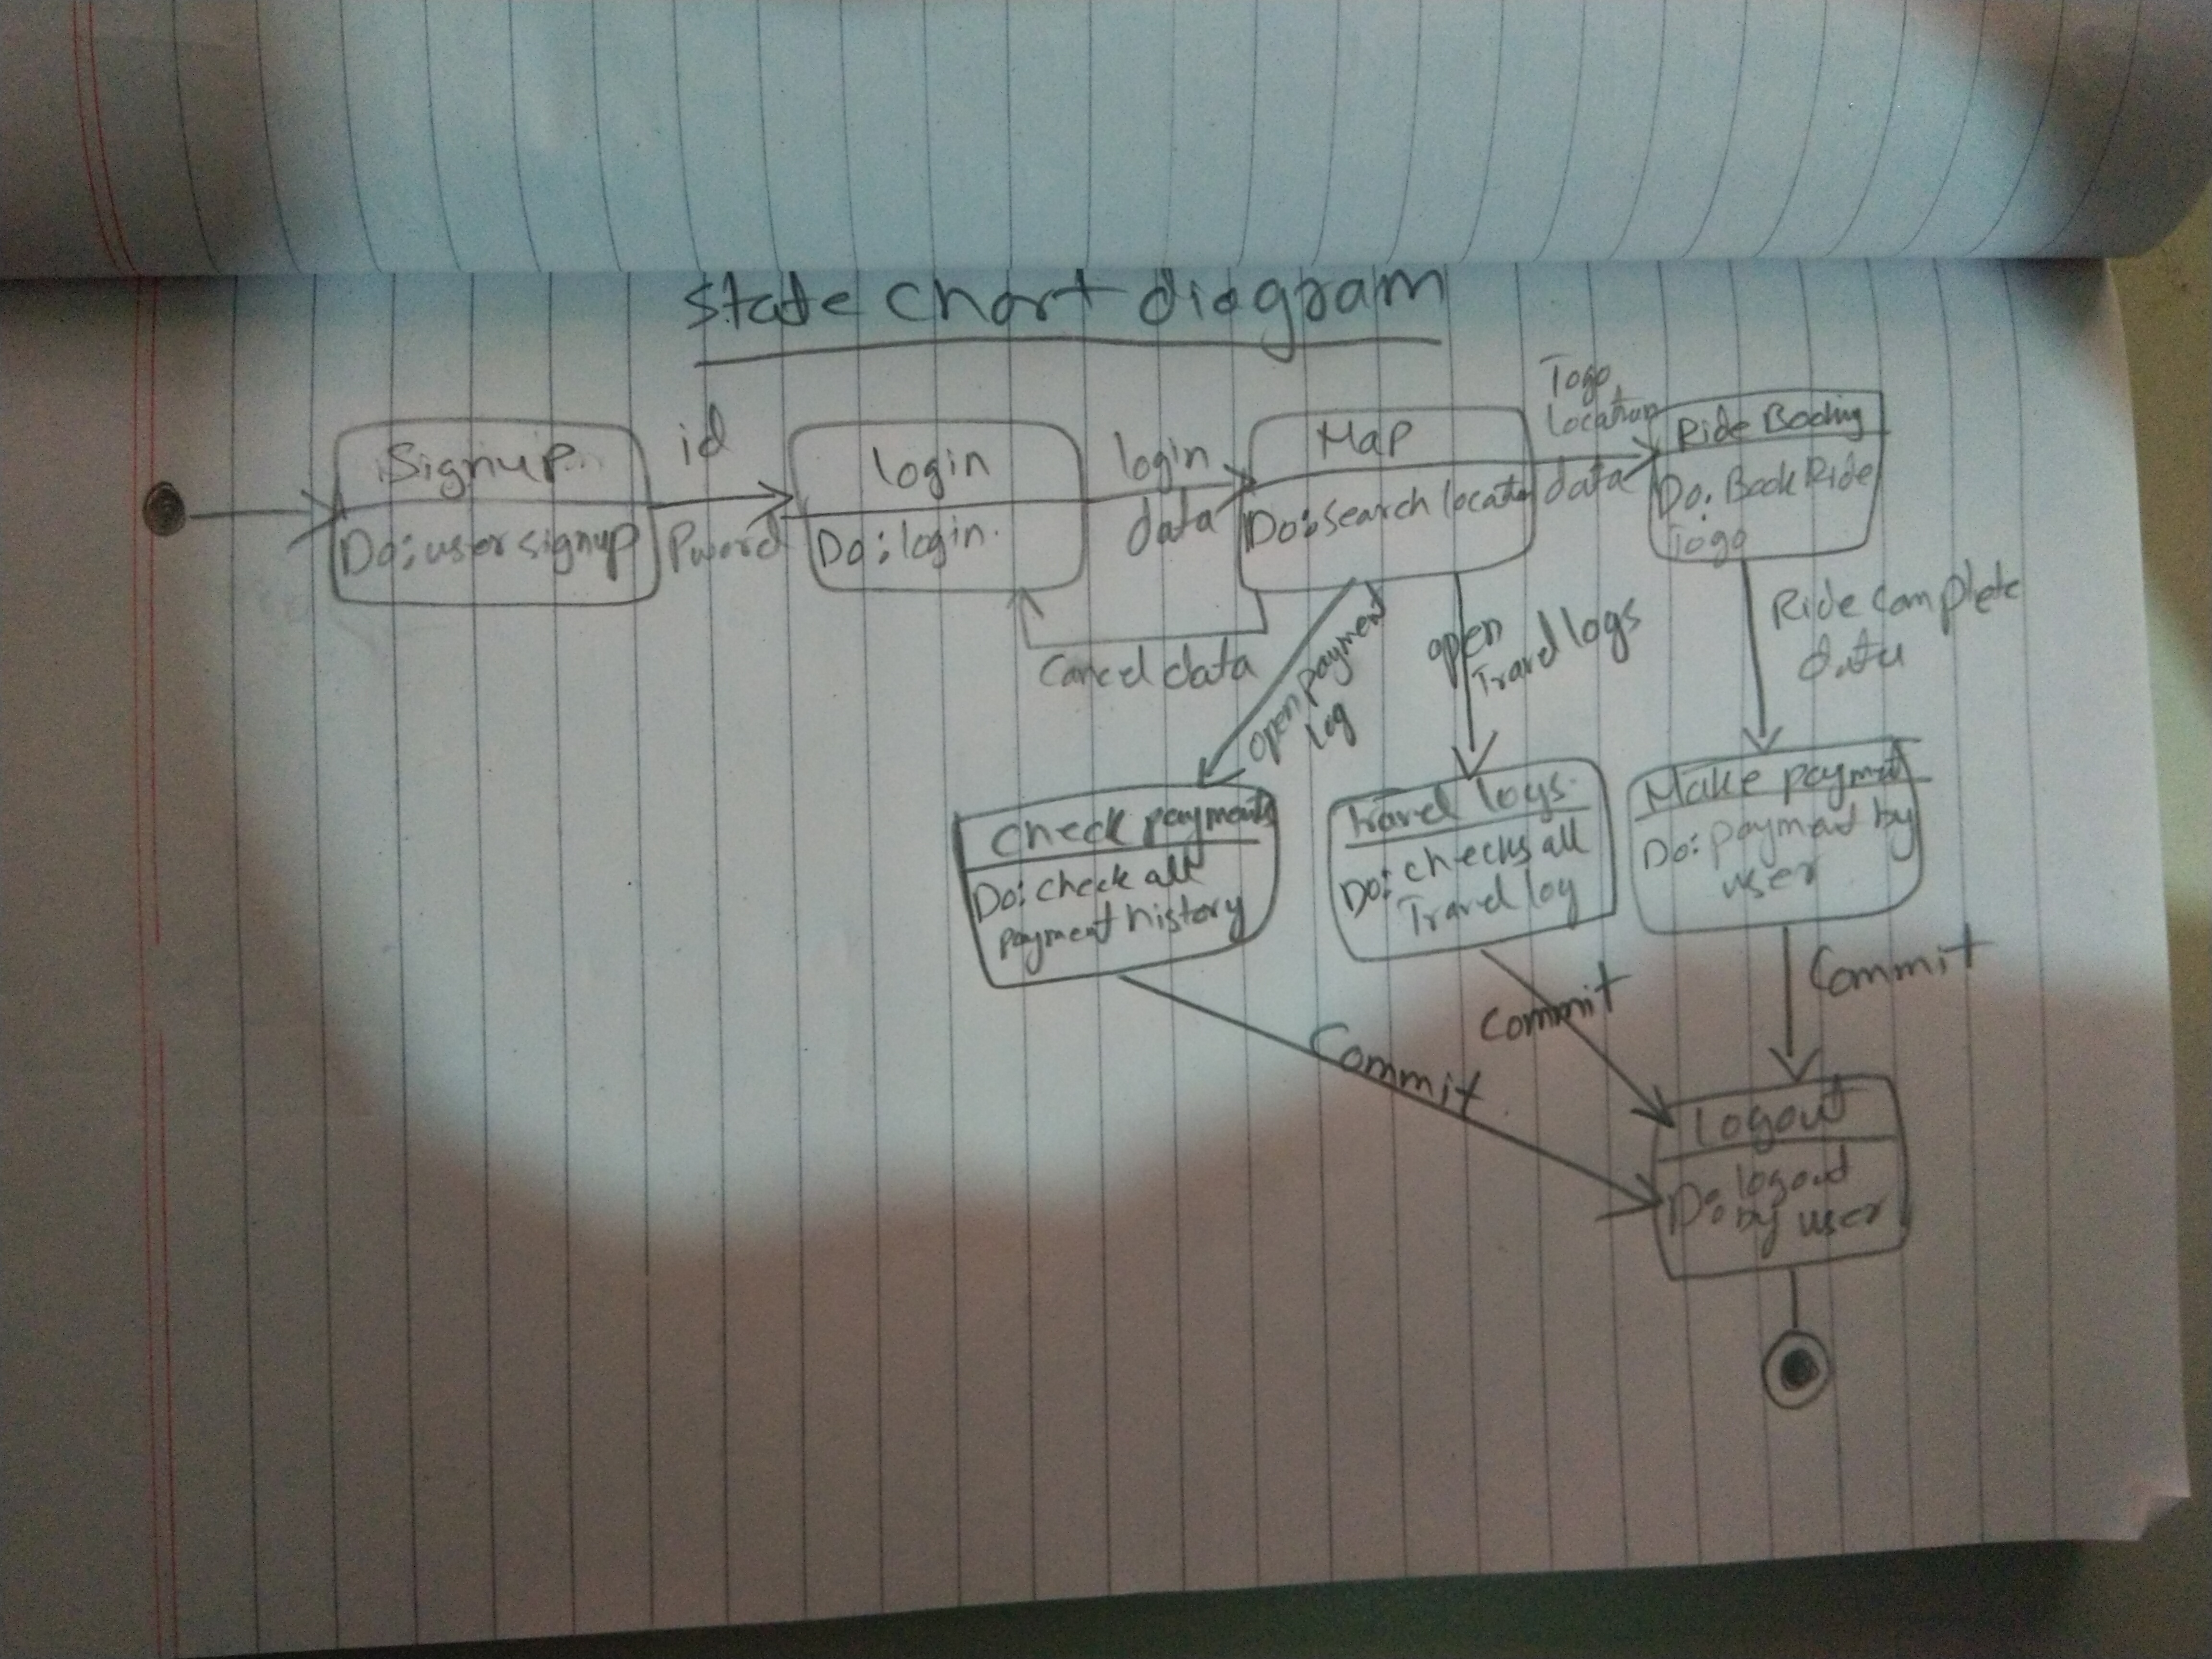 State chart diagram
Signup
Do: user signup
id
Pword
login
Do: login.
login
data
Map
Do: search locatn
Togo
Location
data
Ride Booking
Do: Book Ride
Togo
Cancel data
open payment
log
open
Travel logs
Ride complete
data
Check payments
Do: check all
payment history
Travel logs
Do: checks all
Travel log
Make payment
Do: payment by
user
Commit
Commit
Commit
Logout
Do: logout
by user